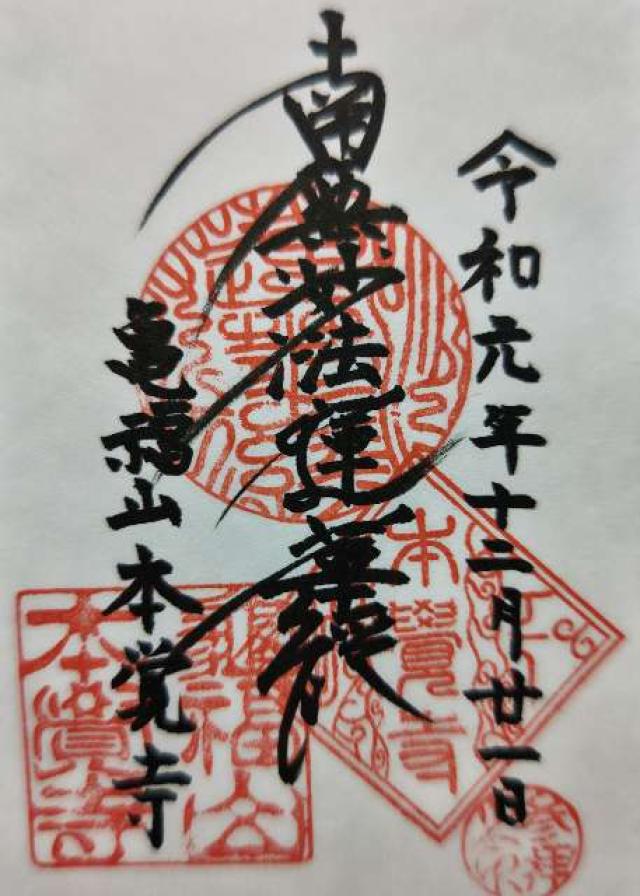 令和元年十二月廿一日
南無妙法蓮華経
亀福山本覚寺
本覺寺
龜福山
本覺寺